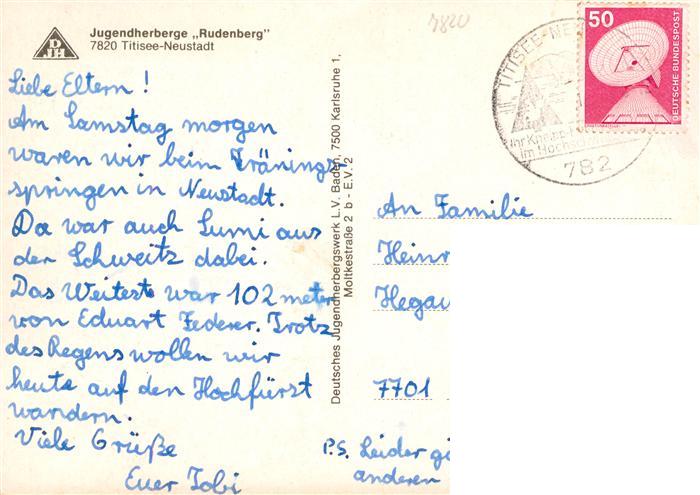 Jugendherberge „Rudenberg"
7820 Titisee-Neustadt
7820
50
DEUTSCHE BUNDESPOST
TITISEE-NE
782
Liebe Eltern!
Am Samstag morgen
waren wir beim Tränings-
springen in Neustadt.
Da war auch Sumi aus
der Schweitz dabei.
Das Weiteste war 102 meter
von Eduart Federer. Trotz
des Regens wollen wir
heute auf den Hochfürst
wandern.
Viele Grüße
Euer Tobi
Deutsches Jugendherbergswerk L.V. Baden, 7500 Karlsruhe 1,
Moltkestraße 2 b - E.V. 2
An Familie
Heinr
Hegau
7701
P.S. Leider gi
anderen